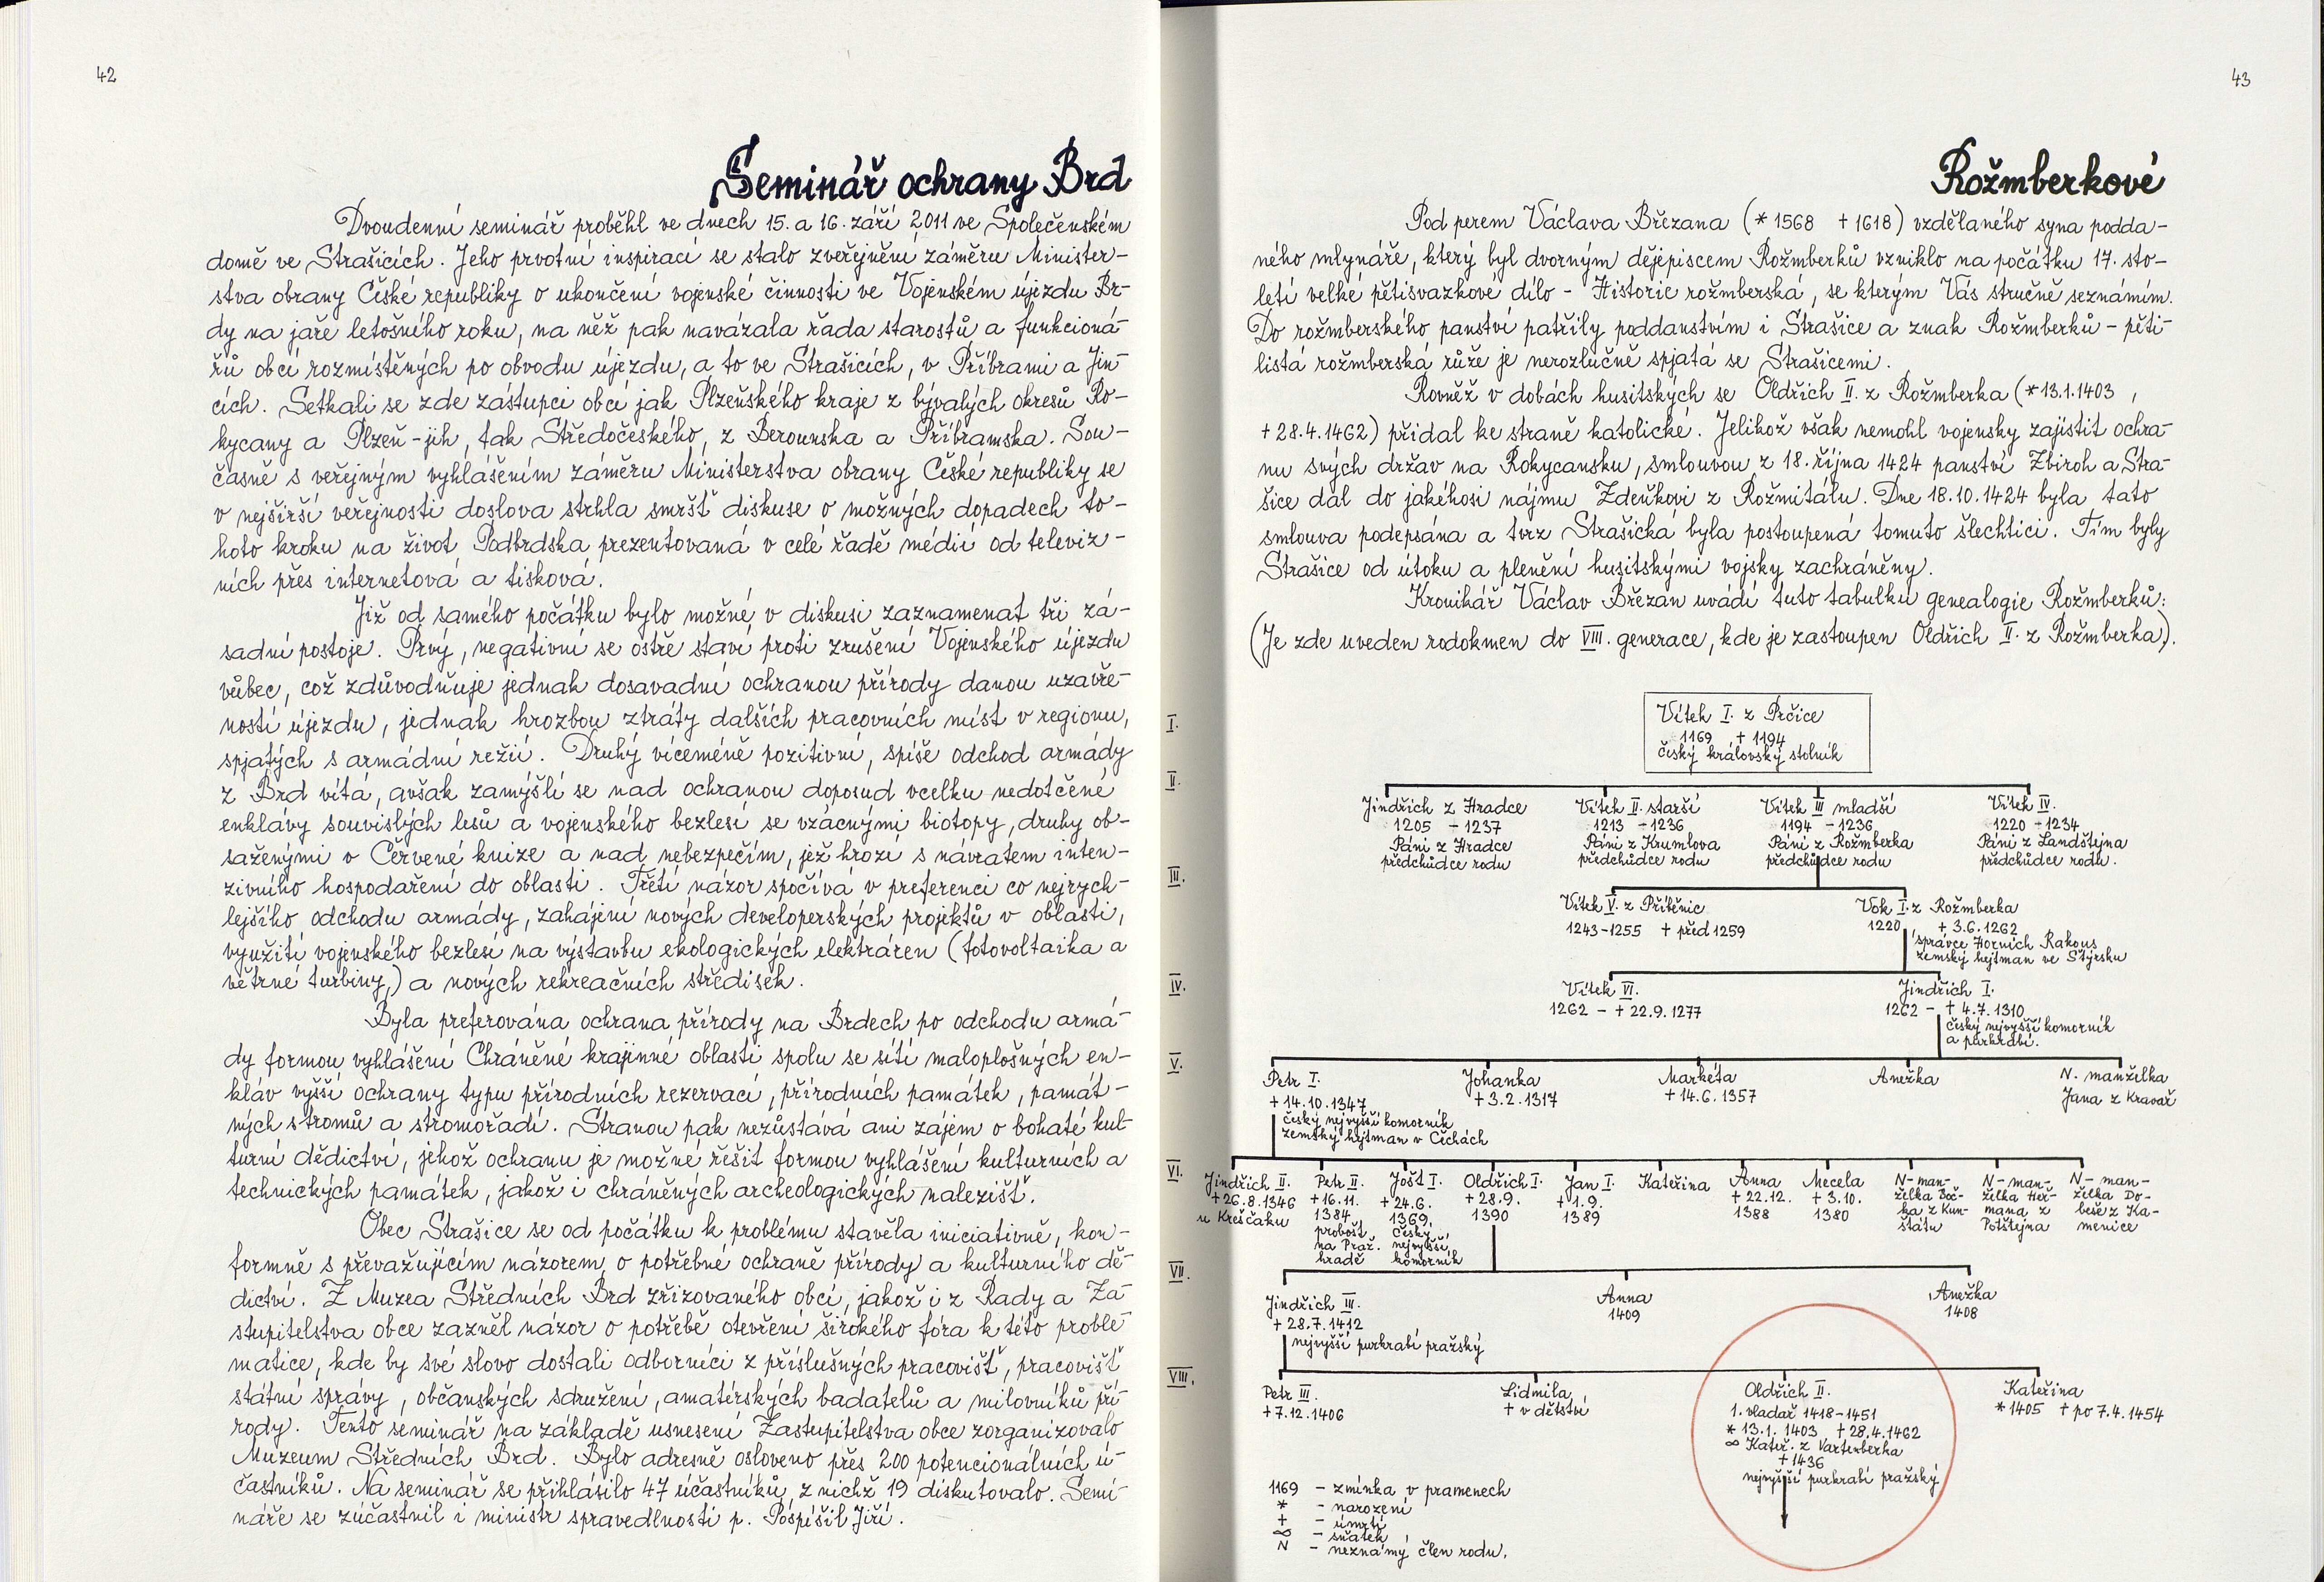 42
Seminář ochrany Brd
Dvoudenní seminář proběhl ve dnech 15. a 16. září 2011 ve Společenském
domě ve Strašicích. Jeho prvotní inspirací se stalo zveřejnění záměru Minister-
stva obrany České republiky o ukončení vojenské činnosti ve Vojenském újezdu Br-
dy na jaře letošního roku, na něž pak navázala řada starostů a funkcioná-
řů obcí rozmístěných po obvodu újezdu, a to ve Strašicích, v Příbrami a Jin-
cích. Setkali se zde zástupci obcí jak Plzeňského kraje z bývalých okresů Ro-
kycany a Plzeň-jih, tak Středočeského, z Berounska a Příbramska. Sou-
časně s veřejným vyhlášením záměru Ministerstva obrany České republiky se
v nejširší veřejnosti doslova strhla smršť diskuse o možných dopadech to-
hoto kroku na život Podbrdska prezentovaná v celé řadě médií od televiz-
ních přes internetová a tisková.
Již od samého počátku bylo možné v diskusi zaznamenat tři zá-
sadní postoje. Prvý, negativní se ostře staví proti zrušení Vojenského újezdu
vůbec, což zdůvodňuje jednak dosavadní ochranou přírody danou uzavře-
ností újezdu, jednak hrozbou ztráty dalších pracovních míst v regionu,
spjatých s armádní režií. Druhý víceméně pozitivní, spíše odchod armády
z Brd vítá, avšak zamýšlí se nad ochranou doposud vcelku nedotčené
enklávy souvislých lesů a vojenského bezlesí se vzácnými biotopy, druhy ob-
saženými v Červené knize a nad nebezpečím, jež hrozí s návratem inten-
zivního hospodaření do oblasti. Třetí názor spočívá v preferenci co nejrych-
lejšího odchodu armády, zahájení nových developerských projektů v oblasti,
využití vojenského bezlesí na výstavbu ekologických elektráren (fotovoltaika a
větrné turbiny,) a nových rekreačních středisek.
Byla preferována ochrana přírody na Brdech po odchodu armá-
dy formou vyhlášení Chráněné krajinné oblasti spolu se sítí maloplošných en-
kláv vyšší ochrany typu přírodních rezervací, přírodních památek, památ-
ných stromů a stromořadí. Stranou pak nezůstává ani zájem o bohaté kul-
turní dědictví, jehož ochranu je možné řešit formou vyhlášení kulturních a
technických památek, jakož i chráněných archeologických nalezišť.
Obec Strašice se od počátku k problému stavěla iniciativně, kon-
formně s převažujícím názorem o potřebné ochraně přírody a kulturního dě-
dictví. Z Muzea Středních Brd zřizovaného obcí, jakož i z Rady a Za-
stupitelstva obce zazněl názor o potřebě otevření širokého fóra k této proble-
matice, kde by své slovo dostali odborníci z příslušných pracovišť, pracovišť
státní správy, občanských sdružení, amatérských badatelů a milovníků pří-
rody. Tento seminář na základě usnesení Zastupitelstva obce zorganizovalo
Muzeum Středních Brd. Bylo adresně osloveno přes 200 potencionálních ú-
častníků. Na seminář se přihlásilo 47 účastníků, z nichž 19 diskutovalo. Semi-
náře se zúčastnil i ministr spravedlnosti p. Pospíšil Jiří.
43
Rožmberkové
Pod perem Václava Březana (* 1568 + 1618) vzdělaného syna podda-
ného mlynáře, který byl dvorným dějepiscem Rožmberků vzniklo na počátku 17. sto-
letí velké pětisvazkové dílo - Historie rožmberská, se kterým Vás stručně seznámím.
Do rožmberského panství patřily poddanstvím i Strašice a znak Rožmberků - pěti-
listá rožmberská růže je nerozlučně spjatá se Strašicemi.
Rovněž v dobách husitských se Oldřich II. z Rožmberka (* 13.1.1403,
+ 28.4.1462) přidal ke straně katolické. Jelikož však nemohl vojensky zajistit ochra-
nu svých držav na Rokycansku, smlouvou z 18. října 1424 panství Zbiroh a Stra-
šice dal do jakéhosi nájmu Zdeňkovi z Rožmitálu. Dne 18.10.1424 byla tato
smlouva podepsána a tvrz Strašická byla postoupená tomuto šlechtici. Tím byly
Strašice od útoku a plenění husitskými vojsky zachráněny.
Kronikář Václav Březan uvádí tuto tabulku genealogie Rožmberků:
(Je zde uveden rodokmen do VIII. generace, kde je zastoupen Oldřich II. z Rožmberka).
I.
Vítek I. z Prčice
1169 + 1194
český královský stolník
II.
Jindřich z Hradce
1205 - 1237
Páni z Hradce
předchůdce rodu
Vítek II. starší
1213 - 1236
Páni z Krumlova
předchůdce rodu
Vítek III mladší
1194 - 1236
Páni z Rožmberka
předchůdce rodu
Vítek IV.
1220 - 1234
Páni z Landštejna
předchůdce rodu.
III.
Vítek V. z Příběnic
1243-1255 + před 1259
Vok I. z Rožmberka
1220 + 3.6.1262
správce Horních Rakous
zemský hejtman ve Štýrsku
IV.
Vítek VI.
1262 - + 22.9.1277
Jindřich I.
1262 - + 4.7.1310
český nejvyšší komorník
a purkrabí.
V.
Petr I.
+ 14.10.1347
český nejvyšší komorník
zemský hejtman v Čechách
Johanka
+ 3.2.1317
Markéta
+ 14.6.1357
Anežka
N. manželka
Jana z Kravař
VI.
Jindřich II.
+ 26.8.1346
u Kreščaku
Petr II.
+ 16.11.
1384
probošt
na Praž.
hradě
Jošt I.
+ 24.6.
1369,
český
nejvyšší
komorník
Oldřich I.
+ 28.9.
1390
Jan I.
+ 1.9.
1389
Kateřina
Anna
+ 22.12.
1388
Mecela
+ 3.10.
1380
N- man-
želka Boč-
ka z Kun-
štátu
N- man-
želka Heř-
mana z
Potštejna
N- man-
želka Do-
beše z Ka-
menice
VII.
Jindřich III.
+ 28.7.1412
nejvyšší purkrabí pražský
Anna
1409
Anežka
1408
VIII.
Petr III.
+ 7.12.1406
Lidmila
+ v dětství
Oldřich II.
1. vladař 1418-1451
* 13.1. 1403 + 28.4.1462
∞ Kateř. z Vartenberka
+ 1436
nejvyšší purkrabí pražský
Kateřina
* 1405 + po 7.4.1454
1169 - zmínka v pramenech
* - narození
+ - úmrtí
∞ - sňatek
N - neznámý člen rodu.